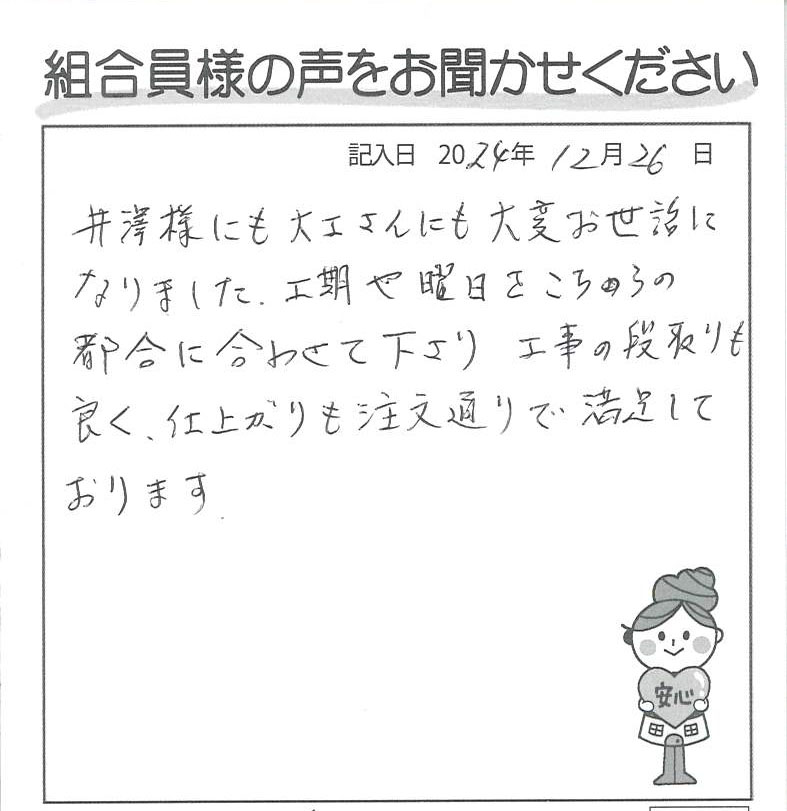 組合員様の声をお聞かせください
記入日 2024年 12月26 日
井澤様にも大工さんにも大変お世話に
なりました。工期や曜日をこちらの
都合に合わせて下さり 工事の段取りも
良く、仕上がりも注文通りで満足して
おります。
安心